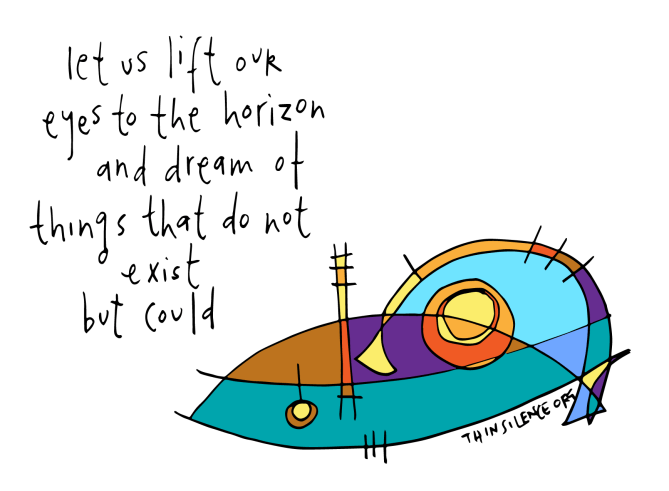 let us lift our
eyes to the horizon
and dream of
things that do not
exist
but could
THINSILENCE.ORG